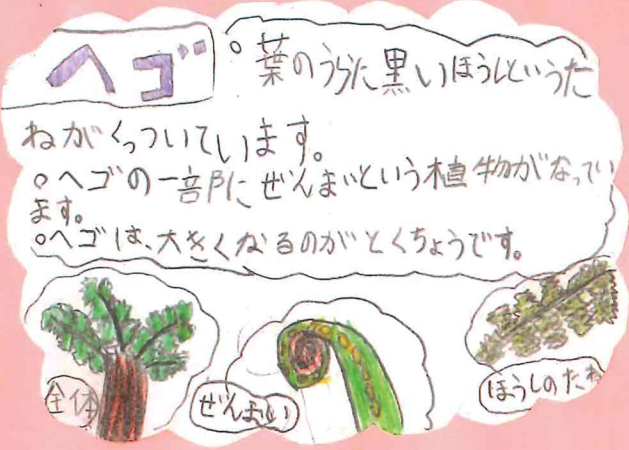 ヘゴ
○葉のうらに黒いほうしというた
ねがくっついています。
○ヘゴの一部にぜんまいという植物がなってい
ます。
○ヘゴは、大きくなるのがとくちょうです。
全体
ぜんまい
ほうしのたね